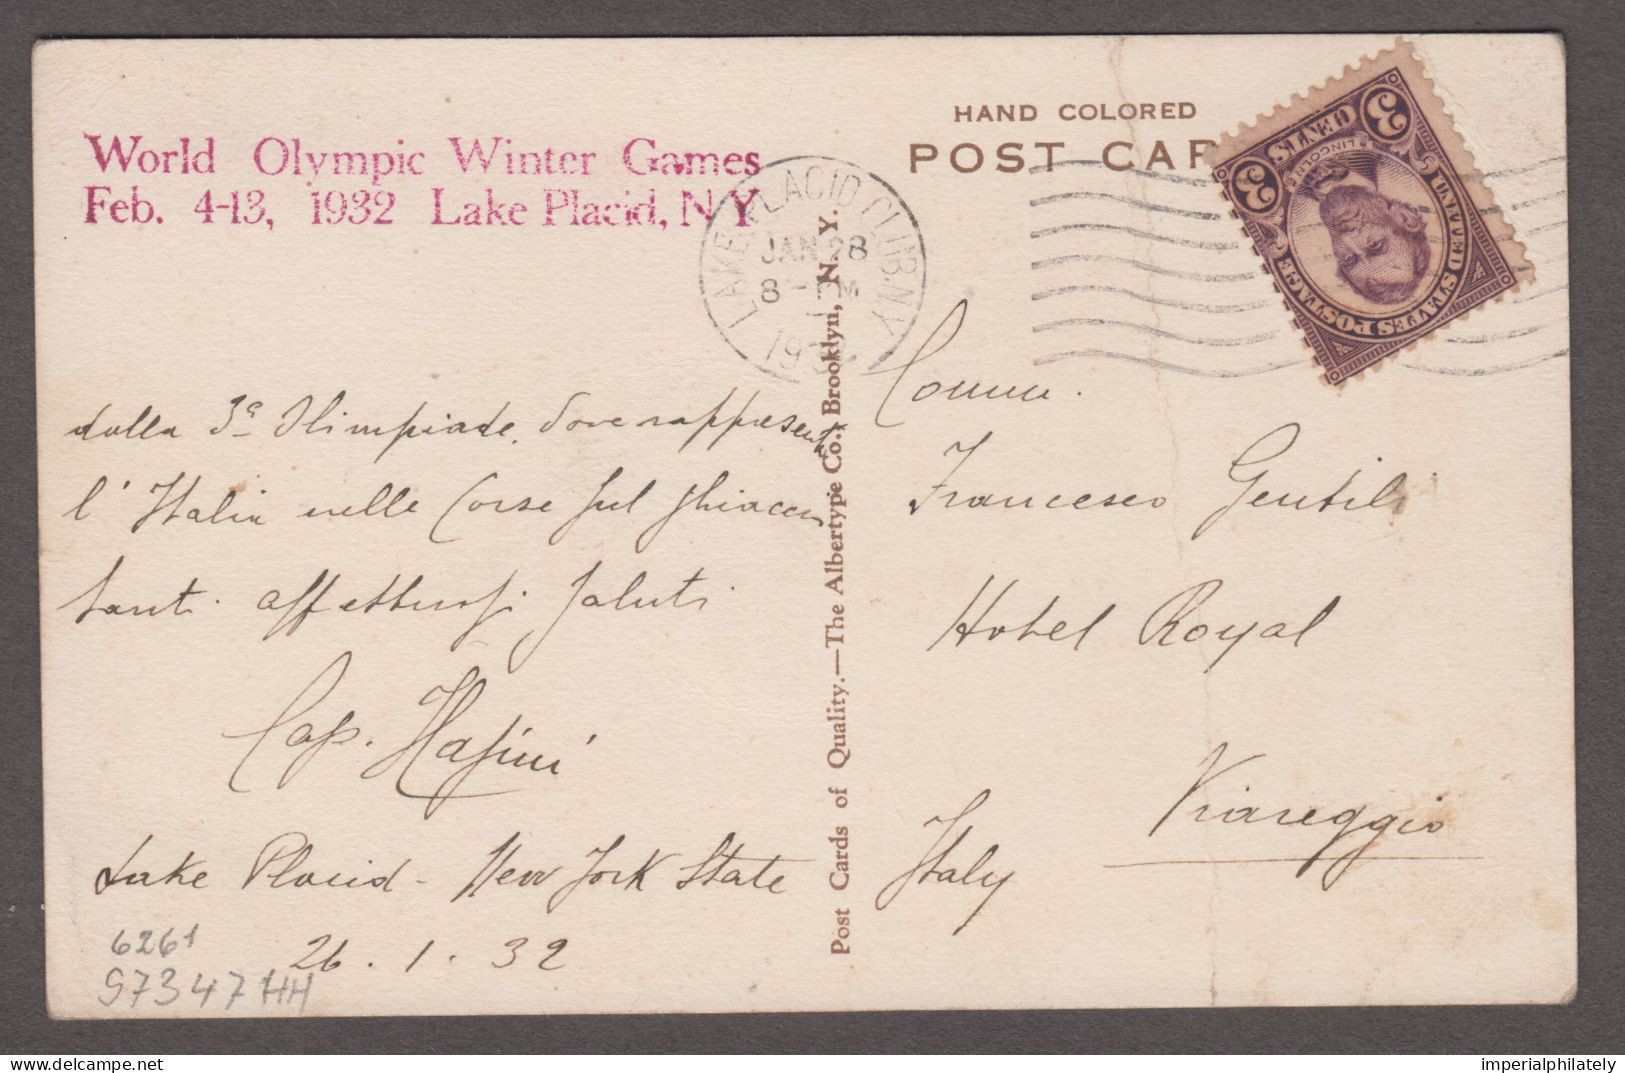 World Olympic Winter Games
Feb. 4-13, 1932 Lake Placid, N Y
HAND COLORED
POST CAR
LAKE PLACID CLUB. N.Y.
JAN 28
8 - PM
1932
3 CENTS 3
LINCOLN
UNITED STATES POSTAGE
dalla 3a Olimpiade, dove rappresento
l'Italia nelle Corse sul ghiaccio
tanti affettuosi saluti
Cap.
Lake Placid - New York State
26 . 1 . 32
6261
97347HH
Post Cards of Quality.—The Albertype Co., Brooklyn, N. Y.
Comm.
Francesco Gentili
Hotel Royal
Viareggio
Italy
delcampe.net
imperialphilately